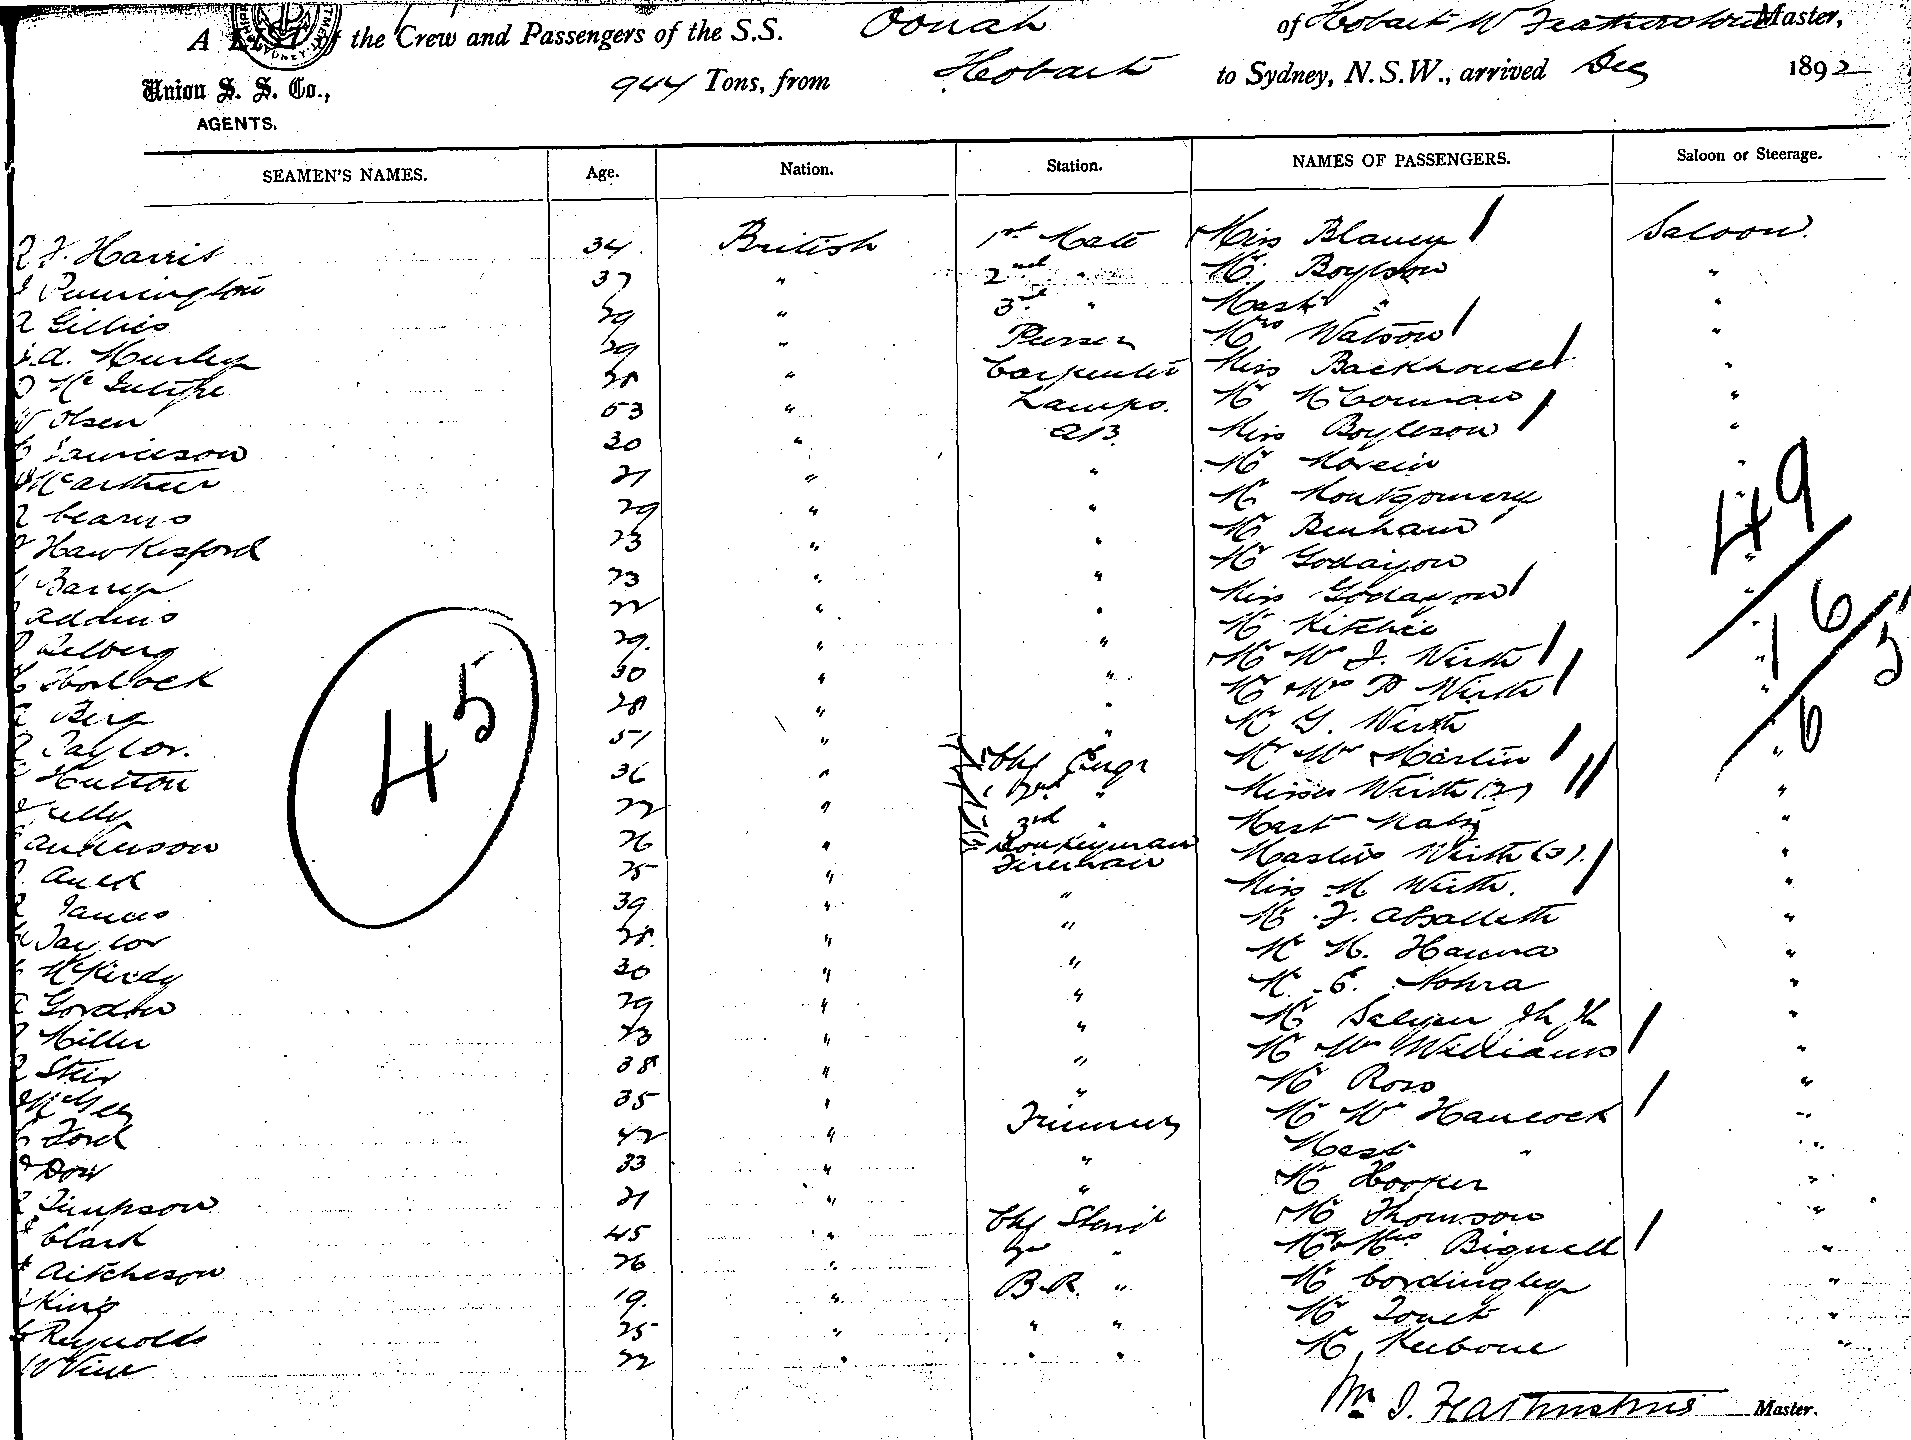 A List of the Crew and Passengers of the S.S. Oonah of Hobart W Featherstone Master,
Union S. S. Co., 944 Tons, from Hobart to Sydney, N.S.W., arrived Dec 1892
AGENTS.
SEAMEN'S NAMES. Age. Nation. Station. NAMES OF PASSENGERS. Saloon or Steerage.
J. Harris 34 British 1st Mate Miss Blaney Saloon
Pennington 37 " 2nd " Mr Boyleson "
Gillies 29 " 3rd " Mast " "
A. Hurley 29 " Purser Mrs Watson "
McIntyre 28 " Carpenter Miss Backhouse "
Olsen 53 " Lamps. Mr McGowan "
Jamieson 30 " AB. Miss Boyleson "
McArthur 21 " " Mr "
Cearns 29 " " Mr Montgomery "
Hawkesford 23 " " Mr Benham 49
Barry 23 " " Mr Godayou "
Addins 22 " " Miss Godayou "
29. " " Mr Kitchie " 16
Horlock 30 " " Mr Mrs J. Wirth " 5
Berg 28 " " Mr Mrs P Wirth "
Taylor. 51 " " Mr G. Wirth 6
Hutton 36 " Chf Engr Mr Mrs Martin "
Kelly 22 " 2nd " Misses Wirth (2) "
Anderson 26 " 3rd " Mast "
Auld 25 " Donkeyman Masters Wirth (3). "
James 39 " Fireman Miss M Wirth. "
Taylor 28. " " Mr F. "
McKirdy 30 " " Mr H. Hanna "
Gordon 29 " " Mr E. Nohra "
Miller 23 " " Mr "
38 " " Mr Mrs Williams "
35 " " Mr Ross "
Ford 42 " Trimmer Mr Mrs Hancock "
Dow 33 " " Mast " "
Simpson 21 " " Mr Hooper "
Clark 45 " Chf Stewd Mr Thomson "
Aitcheson 26 " 2nd " Mr & Mrs Bignell "
King 19. " B.R. " Mr Cordingley "
Reynolds 25 " " " Mr "
W Vine 22 " " " Mr "
45
Wm J. Featherstone Master.